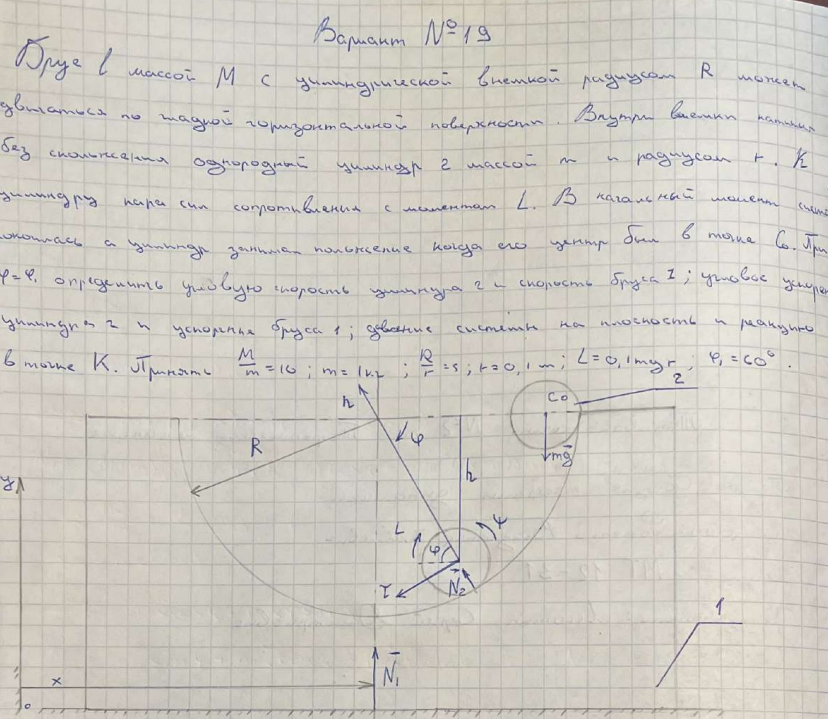 Вариант №19
Брус 1 массой М с цилиндрической выемкой радиусом R может
двигаться по гладкой горизонтальной поверхности. Внутри выемки
без скольжения однородный цилиндр 2 массой m и радиусом r. К
цилиндру пара сил сопротивления с моментом L. В начальный момент
а цилиндр занимал положение когда его центр был в точке C₀. При
φ=φ₁ определить угловую скорость цилиндра 2 и скорость бруса 1; угловое
цилиндра 2 и ускорение бруса 1; давление системы на плоскость и реакцию
в точке К. Принять M/m=10; m=1кг; R/r=5; r=0,1м; L=0,1mgr; φ₁=60°.
n
C₀
2
R
φ
mg
h
y
L
ψ
φ
τ
N₂
1
N₁
x
0